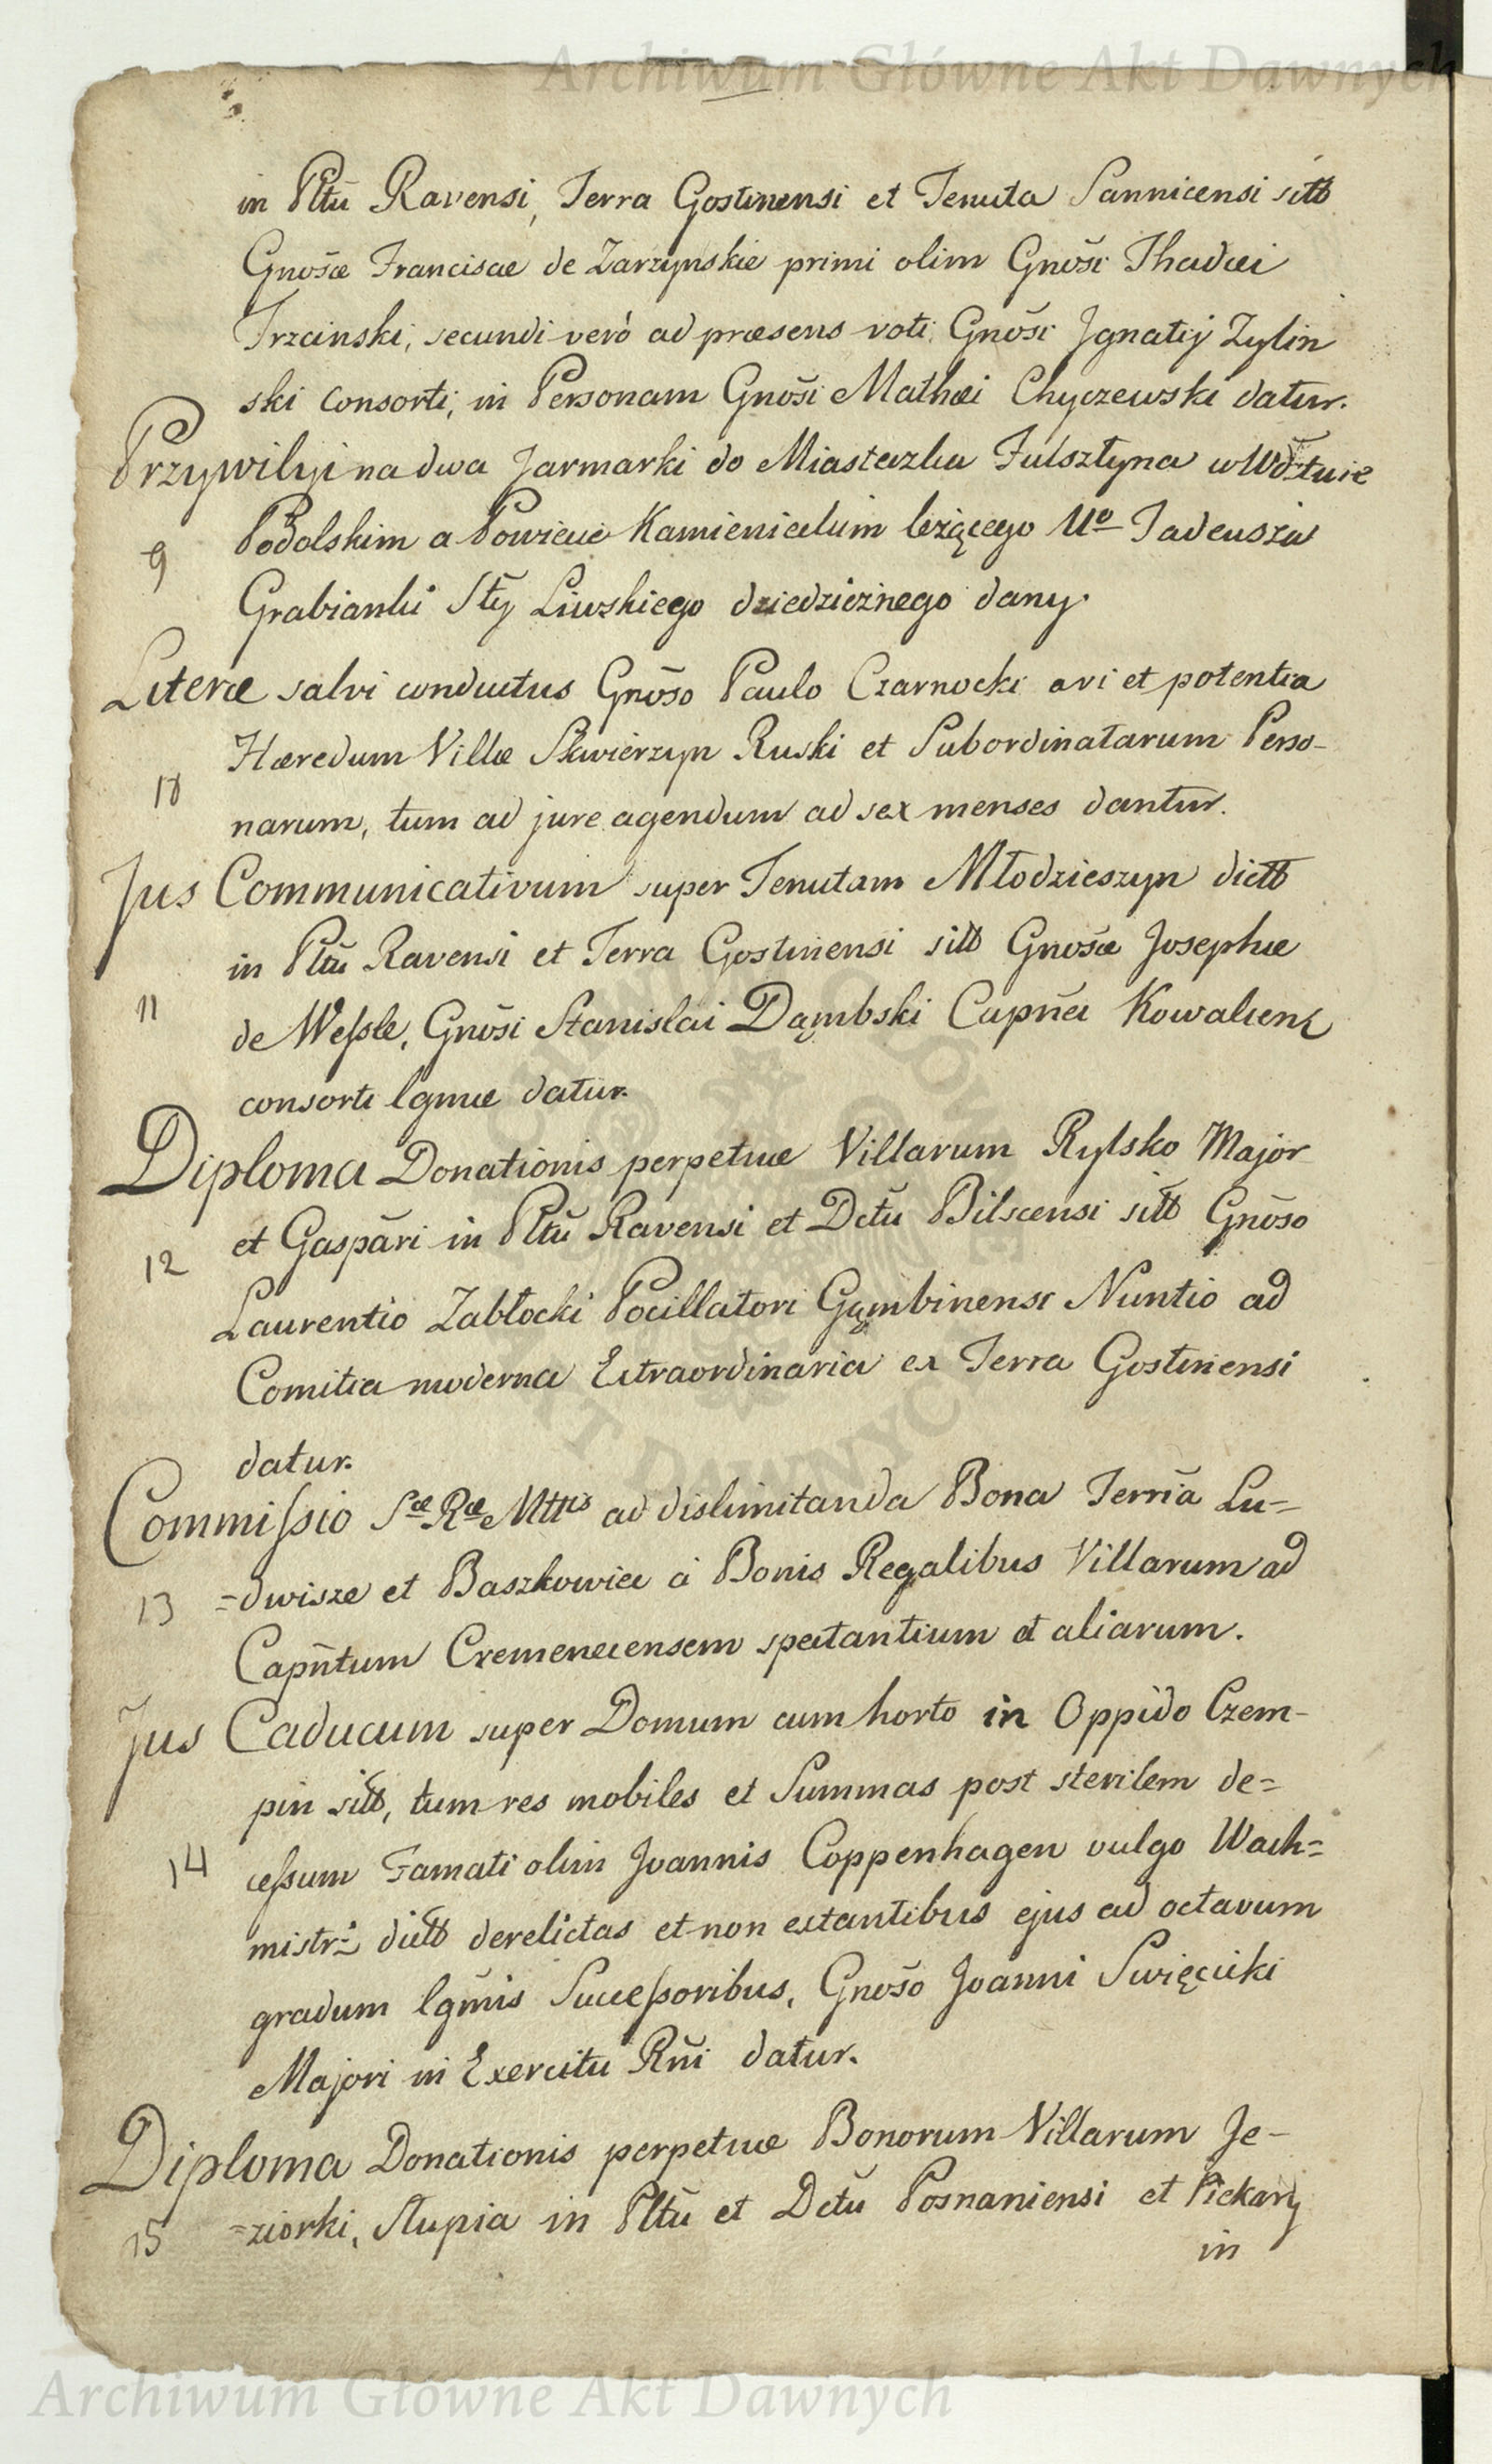 Archiwum Główne Akt Dawnych
in Pltū Ravensi, Terra Gostinensi et Tenuta Sannicensi sitt
Gnosæ Franciscae de Zarzynskie primi olim Gnōsi Thadæi
Trzcinski, secundi verò ad præsens voti Gnōsi Jgnatij Zylin
ski consorti, in Personam Gnōsi Mathæi Chyczewski datur.
Przywilij na dwa Jarmarki do Miasteczka Fulsztyna w Wdztwie
9 Podolskim a Powiecie Kamienieckim leżącego Uo Tadeusza
Grabianki Sty Liwskiego dziedzicznego dany.
Literæ salvi conductus Gnōso Paulo Czarnocki avi et potentia
Hæredum Villæ Skwierzyn Ruski et Subordinatarum Perso-
10 narum, tum ad jure agendum ad sex menses dantur.
Jus Communicativum super Tenutam Młodzieszyn dictt
in Pltū Ravensi et Terra Gostinensi sitt Gnosæ Josephæ
11 de Weſsle, Gnōsi Stanislai Dąmbski Capnēi Kowaliens
consorti lgmæ datur.
Diploma Donationis perpetuæ Villarum Rylsko Major
et Gaspāri in Pltū Ravensi et Dctū Bilscensi sitt Gnōso
12 Laurentio Zabłocki Pocillatori Gąmbinensi Nuntio ad
Comitia moderna Extraordinaria ex Terra Gostinensi
datur.
Commiſsio Sæ Ræ Mttis ad dislimitanda Bona Terrīa Lu=
13 =dwisze et Baszkowice à Bonis Regalibus Villarum ad
Capn̄tum Cremenecensem spectantium et aliarum.
Jus Caducum super Domum cum horto in Oppido Czem-
pin sitt, tum res mobiles et Summas post sterilem de=
14 ceſsum Famati olim Joannis Coppenhagen vulgo Wach=
mistrz dictt derelictas et non extantibus ejus ad octavum
gradum lgm̄is Succeſsoribus, Gnōso Joanni Swięcicki
Majori in Exercitu Rn̄i datur.
Diploma Donationis perpetuæ Bonorum Villarum Je-
15 =ziorki, Słupia in Pltū et Dctū Posnaniensi et Piekary
in
Archiwum Główne Akt Dawnych